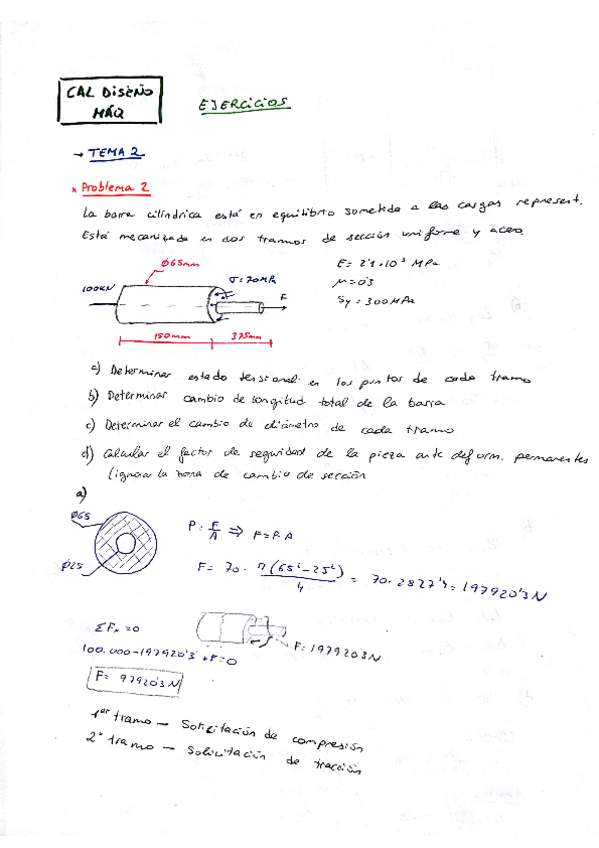 CAL DISEÑO
MÁQ
EJERCICIOS
→ TEMA 2
x Problema 2
La barra cilíndrica está en equilibrio sometida a las cargas represent.
Está mecanizada en dos tramos de sección uniforme y acero
Ø65mm
100KN
σ=70MPa
F
150mm
375mm
E= 2'1·10⁵ MPa
μ=0'3
Sy=300MPa
a) Determinar estado tensional en los puntos de cada tramo
b) Determinar cambio de longitud total de la barra
c) Determinar el cambio de diámetro de cada tramo
d) Calcular el factor de seguridad de la pieza ante deform. permanentes
(ignorar la zona de cambio de sección
a)
Ø65
Ø25
P= F/A ⇒ F=P·A
F= 70· π(65²-25²)/4 = 70·2827'4= 197920'3N
ΣFx=0
100.000-197920'3+F=0
F= 97920'3N
F=197920'3N
1er tramo — Solicitación de compresión
2º tramo — Solicitación de tracción